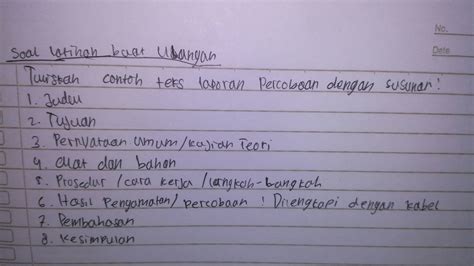 No.
Date
Soal latihan buat Ulangan
Tuliskan contoh teks laporan Percobaan dengan susunan!
1. Judul
2. Tujuan
3. Pernyataan Umum/kajian Teori
4. alat dan bahan
5. Prosedur/cara kerja/langkah-langkah
6. Hasil Pengamatan/percobaan! Dilengkapi dengan tabel
7. Pembahasan
8. Kesimpulan